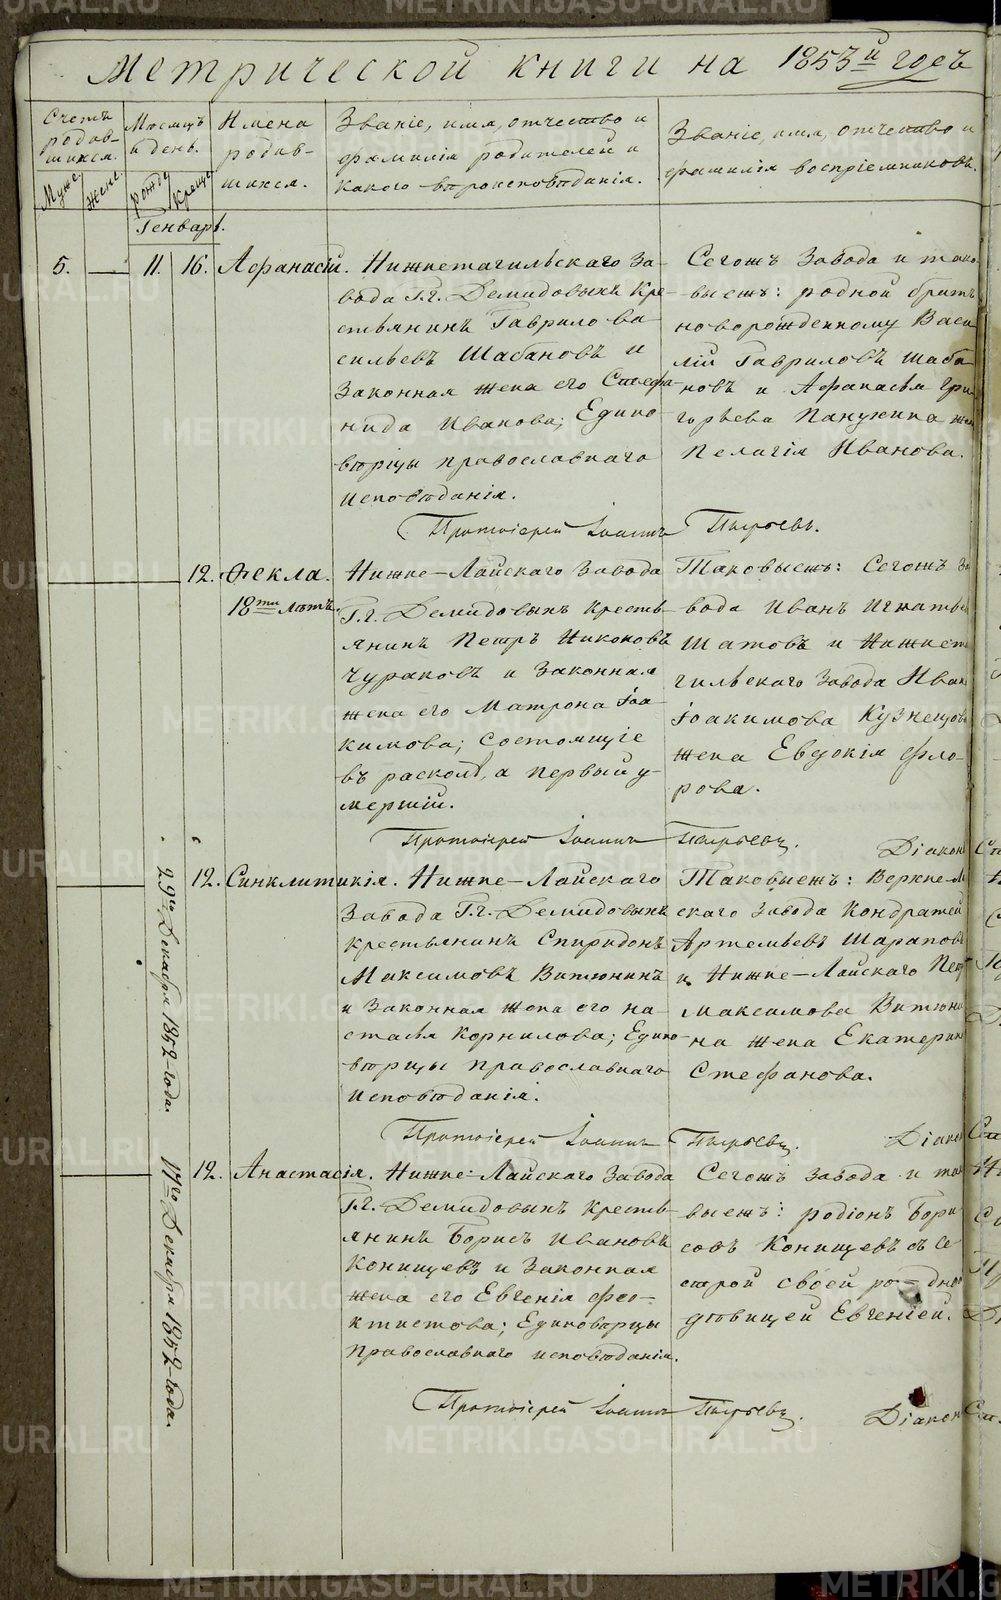 Метрической книги на 1853й годъ
Счетъ родившихся.
Муже.
Жене.
Мѣсяцъ и день.
рожде
Креще
Имена родившихся.
Званіе, имя, отчество и фамилія родителей и какого вѣроисповѣданія.
Званіе, имя, отчество и фамилія воспріемниковъ.
Генварь.
5. — 11. 16. Афанасій.
Нижнетагильскаго За-
вода Г.г. Демидовыхъ Кре-
стьянинъ Гаврило Ва-
сильевъ Шабановъ и
Законная жена его Стефа-
нида Иванова; Едино-
вѣрцы православнаго
исповѣданія.
Сегожъ Завода и тако-
выежъ: родной братъ
новорожденному Васи
лій Гавриловъ Шаба-
новъ и Афанасья Гри-
горьева Панужина жен
Пелагія Иванова.
Протоіерей Іоаннъ Пырьевъ.
12. Фекла.
18ти лѣтъ.
Нижне-Лайскаго Завода
Г.г. Демидовыхъ кресть-
янинъ Петръ Никоновъ
Чураковъ и Законная
жена его Матрона Іоа-
кимова; состоящіе
въ расколѣ, а первый у-
мершій.
Таковыежъ: Сегожъ За
вода Иванъ Игнатье
Шатовъ и Нижнета
гильскаго Завода Иван
Іоакимова Кузнецов
жена Евдокія Фло-
рова.
Протоіерей Іоаннъ Пырьевъ.
Діакон
29го Декабря 1852 года.
12. Синклитикія.
Нижне-Лайскаго
Завода Г.г. Демидовыхъ
крестьянинъ Спиридонъ
Максимовъ Витюнинъ
и Законная жена его На-
стасья Корнилова; Едино-
вѣрцы православнаго
исповѣданія.
Таковыежъ: Верхне-Ла
скаго Завода Кондратей
Артемьевъ Шарапов
и Нижне-Лайскаго Петр
Максимова Витюни
на жена Екатерин
Стефанова.
Протоіерей Іоаннъ Пырьевъ.
Діакон
17го Декабря 1852 года.
12. Анастасія.
Нижне-Лайскаго Завода
Г.г. Демидовыхъ кресть-
янинъ Борисъ Ивановъ
Конищевъ и Законная
жена его Евгенія Фео-
ктистова; Единоверцы
Православнаго исповѣданія.
Сегожъ Завода и так
выежъ: родіонъ Бори
совъ Конищевъ съ Се
строй своей родно
дѣвицей Евгеніей.
Протоіерей Іоаннъ Пырьевъ.
Діакон
METRIKI.GASO-URAL.RU